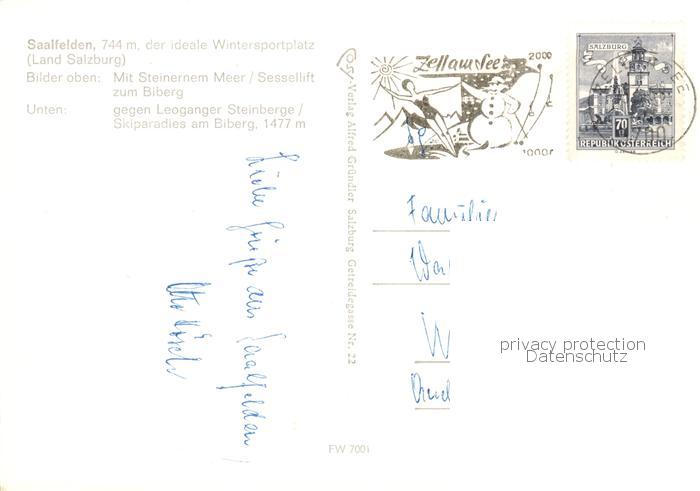 Saalfelden, 744 m, der ideale Wintersportplatz
(Land Salzburg)
Bilder oben: Mit Steinernem Meer / Sessellift
zum Biberg
Unten: gegen Leoganger Steinberge /
Skiparadies am Biberg, 1477 m
Zell am See
2000
SALZBURG
70
REPUBLIK ÖSTERREICH
Cosy-Verlag Alfred Gründler Salzburg Getreidegasse Nr. 22
Liebe Grüße aus Saalfelden
Familie
W
privacy protection
Datenschutz
FW 7001